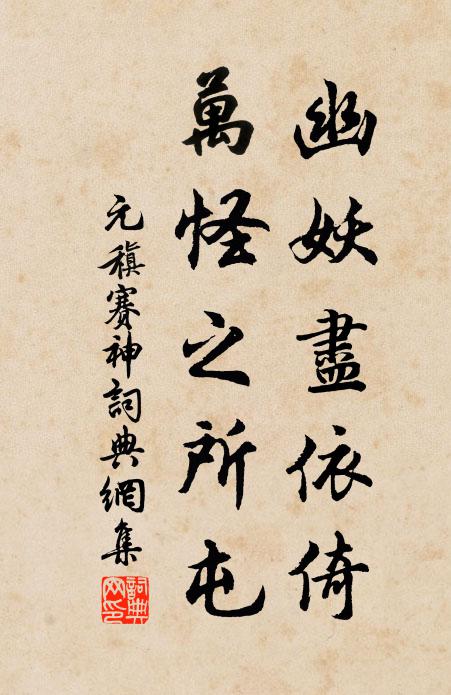 幽妖盡依倚
萬怪之所屯
元稹賽神詞典網集
詞典
网印